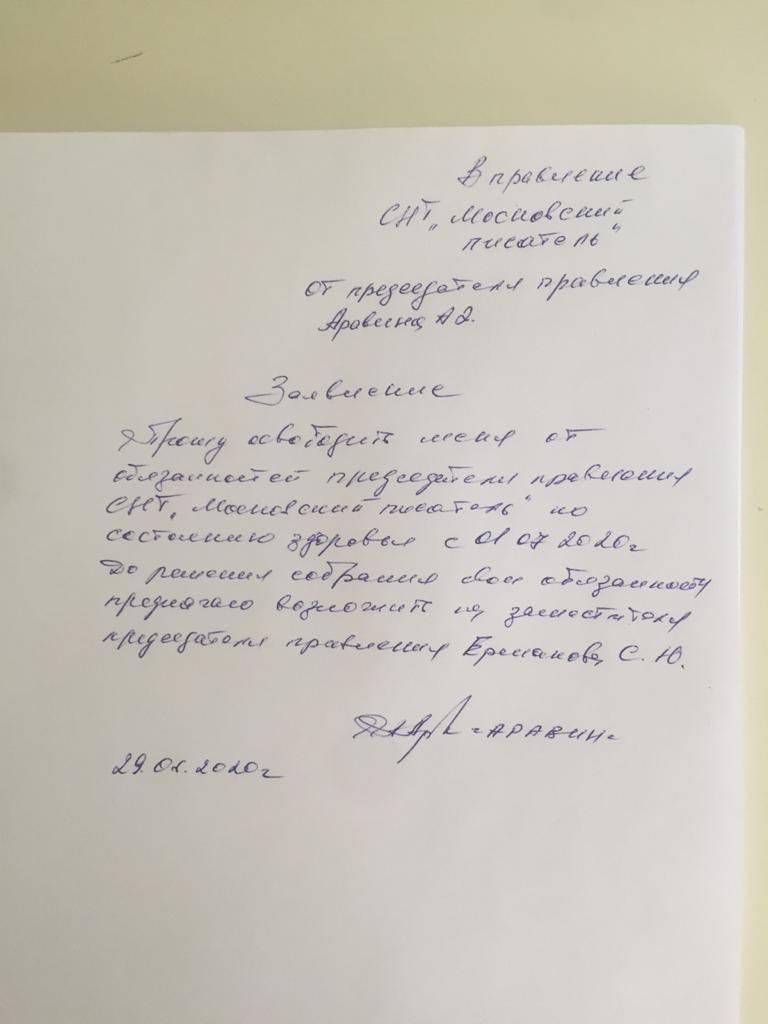 В правление
СНТ „Московский
писатель“
от председателя правления
Аравина А Э.
Заявление
Прошу освободить меня от
обязанностей председателя правления
СНТ „Московский писатель“ по
состоянию здоровья с 01 07 2020г
До решения собрания свои обязанности
предлагаю возложить на заместителя
председателя правления Ермакова С. Ю.
АРАВИН
2020г